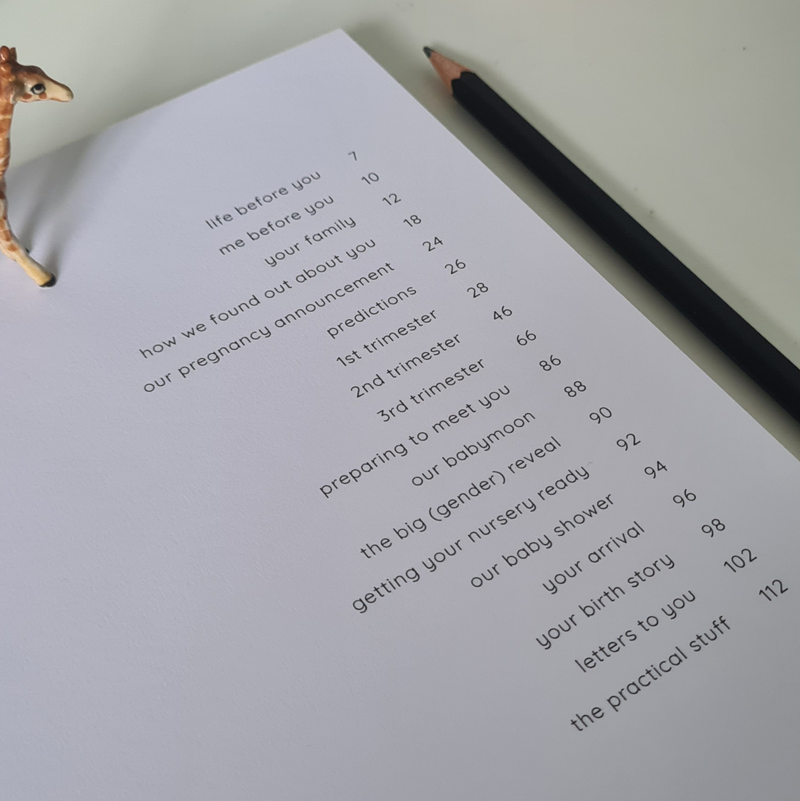 life before you 7
me before you 10
your family 12
how we found out about you 18
our pregnancy announcement 24
predictions 26
1st trimester 28
2nd trimester 46
3rd trimester 66
preparing to meet you 86
our babymoon 88
the big (gender) reveal 90
getting your nursery ready 92
our baby shower 94
your arrival 96
your birth story 98
letters to you 102
the practical stuff 112